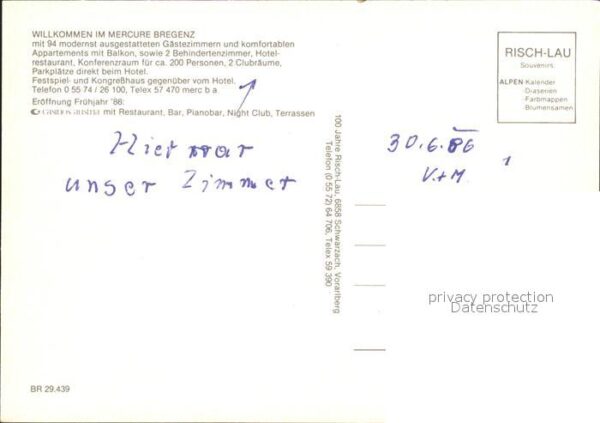 WILLKOMMEN IM MERCURE BREGENZ
mit 94 modernst ausgestatteten Gästezimmern und komfortablen
Appartements mit Balkon, sowie 2 Behindertenzimmer, Hotel-
restaurant, Konferenzraum für ca. 200 Personen, 2 Clubräume,
Parkplätze direkt beim Hotel.
Festspiel- und Kongreßhaus gegenüber vom Hotel.
Telefon 0 55 74 / 26 100, Telex 57 470 merc b a
Eröffnung Frühjahr '86:
CASINOS AUSTRIA mit Restaurant, Bar, Pianobar, Night Club, Terrassen
Hier war
unser Zimmer
BR 29.439
100 Jahre Risch-Lau, 6858 Schwarzach, Vorarlberg
Telefon (0 55 72) 64 706, Telex 59 390
RISCH-LAU
Souvenirs:
ALPEN-Kalender
-Diaserien
-Farbmappen
-Blumensamen
30.6.86
V.+M.
privacy protection
Datenschutz